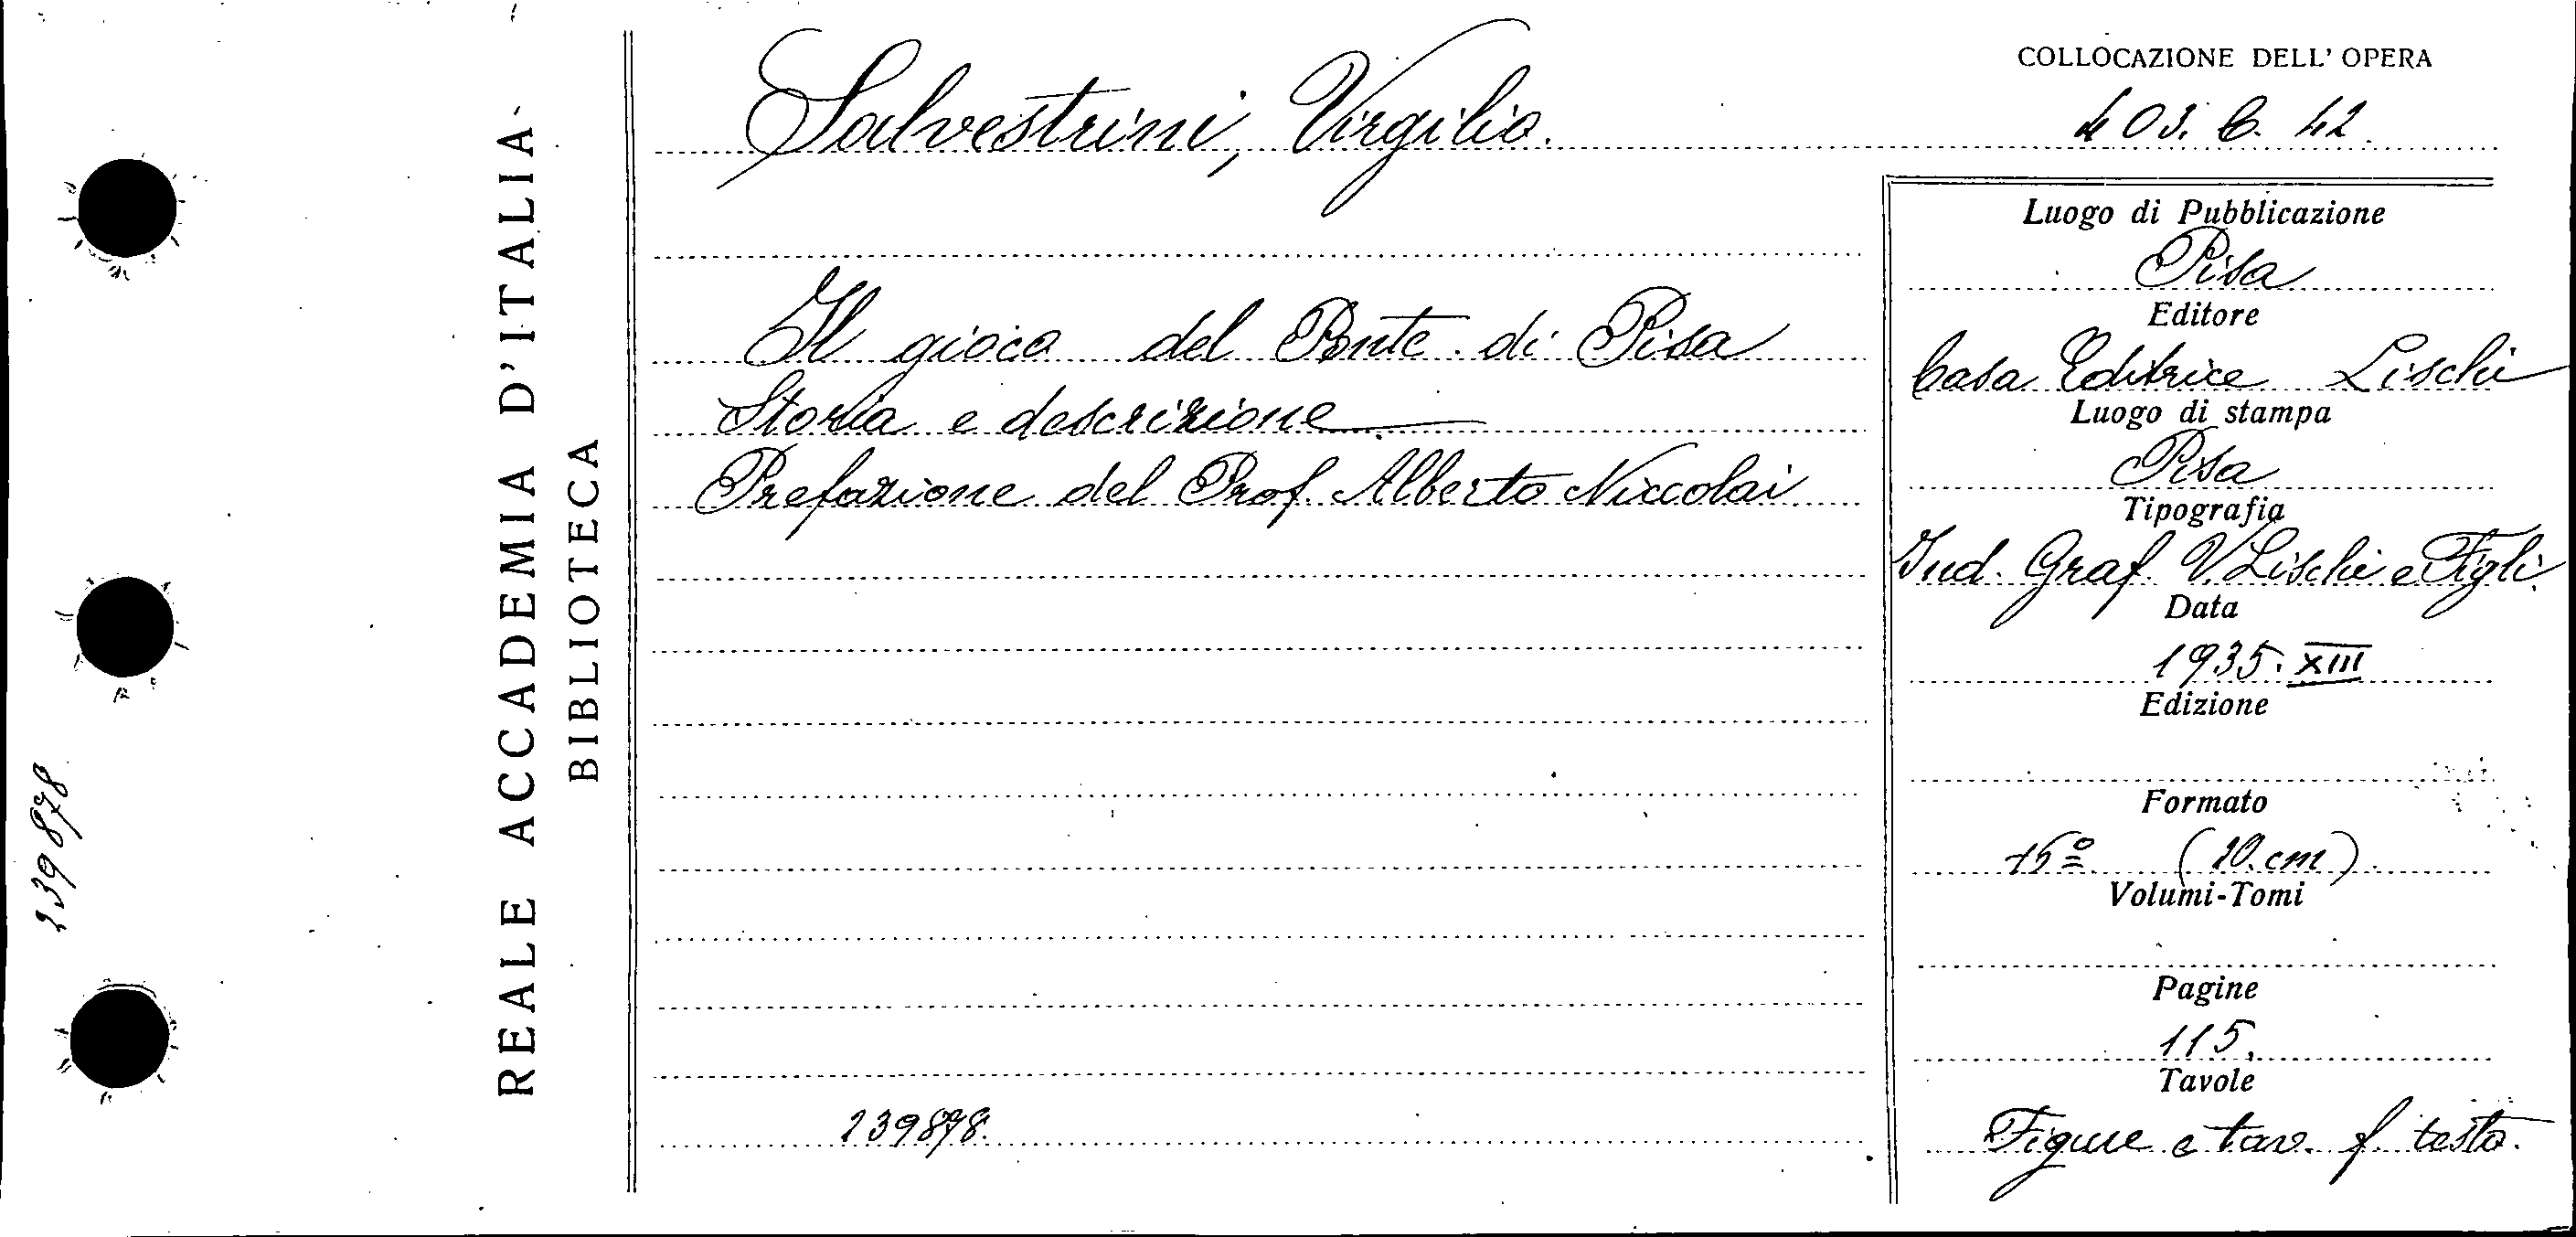 239878
REALE ACCADEMIA D'ITALIA
BIBLIOTECA
Salvestrini, Virgilio.
Il gioco del Ponte di Pisa
Storia e descrizione
Prefazione del Prof. Alberto Niccolai
239878.
COLLOCAZIONE DELL' OPERA
403. C. 42.
Luogo di Pubblicazione
Pisa
Editore
Casa Editrice Lischi
Luogo di stampa
Pisa
Tipografia
Ind. Graf. V. Lischi e Figli.
Data
1935. XIII
Edizione
Formato
(20. cm).
Volumi-Tomi
Pagine
115.
Tavole
Figure e tav. f. testo.